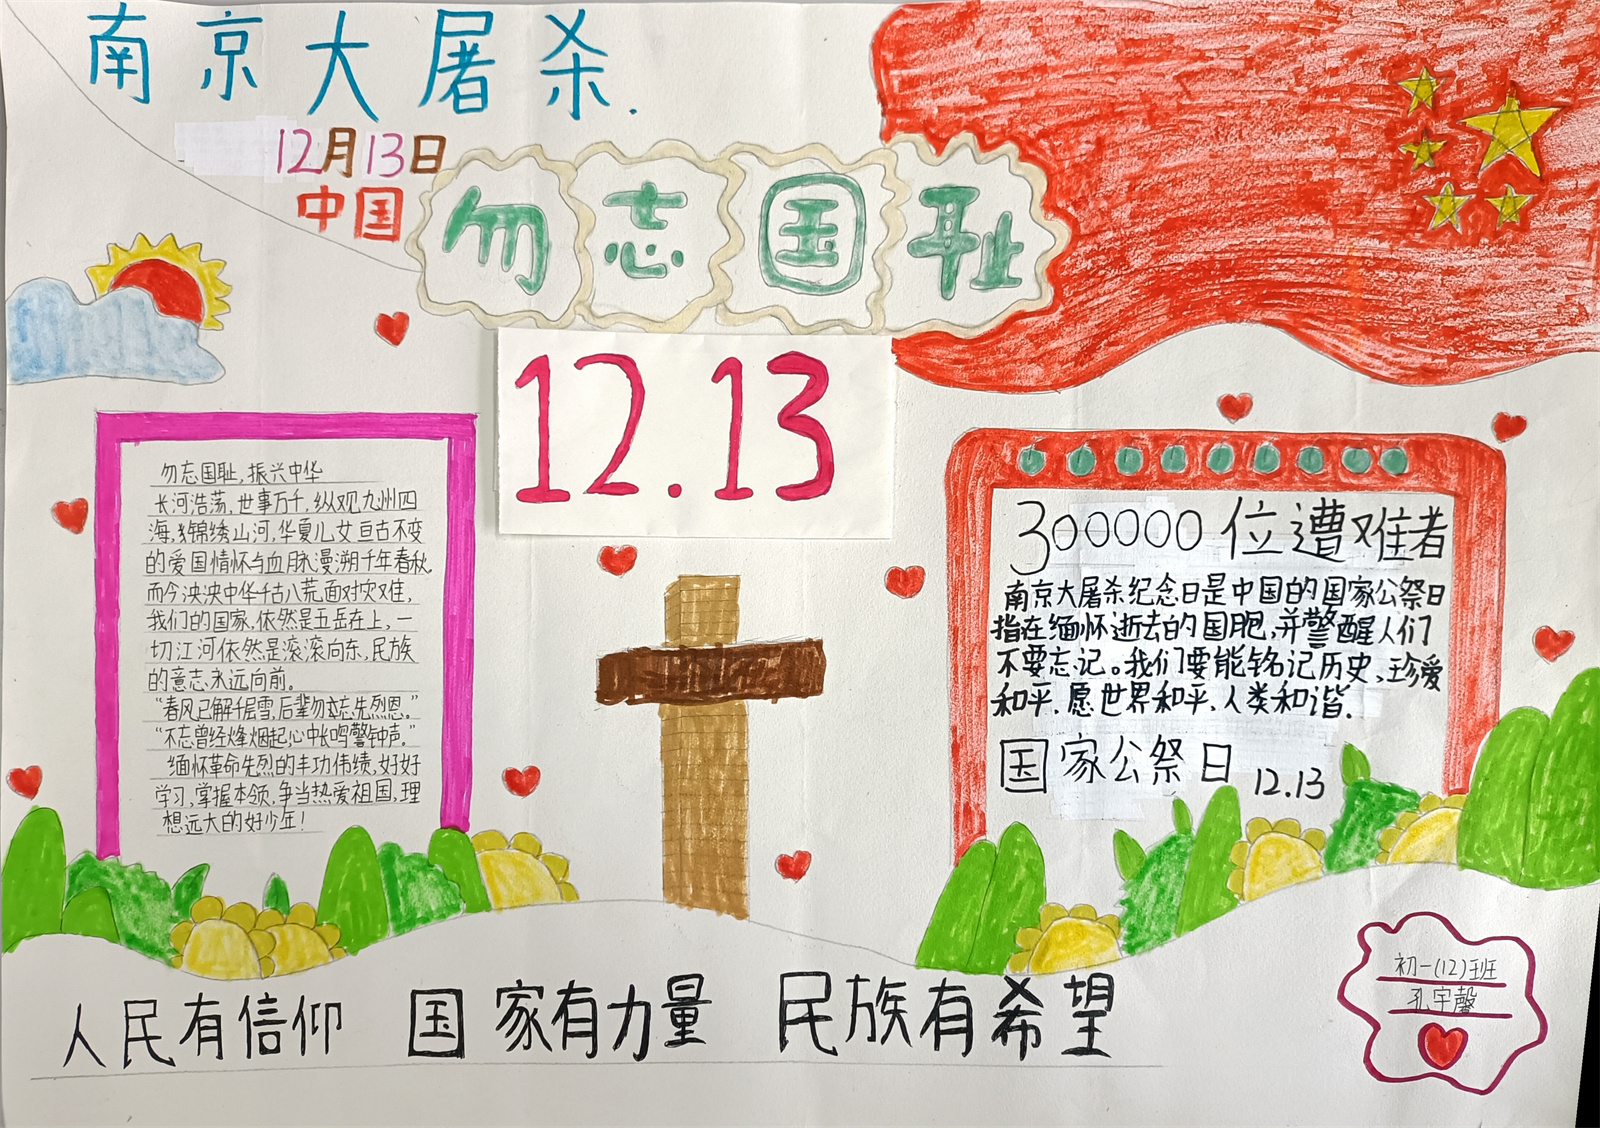 南京大屠杀.
12月13日
中国
勿志国耻
12.13
勿忘国耻,振兴中华
长河浩荡,世事万千,纵观九州四
海,锦绣山河,华夏儿女亘古不变
的爱国情怀与血脉漫溯千年春秋.
而今泱泱中华千古八荒.面对灾难,
我们的国家,依然是五岳在上,一
切江河依然是滚滚向东,民族
的意志永远向前。
“春风已解千层雪,后辈勿忘先烈恩。”
“不忘曾经烽烟起,心中长鸣警钟声。”
缅怀革命先烈的丰功伟绩,好好
学习,掌握本领,争当热爱祖国,理
想远大的好少年!
300000位遭难者
南京大屠杀纪念日是中国的国家公祭日
指在缅怀逝去的国胞,并警醒人们
不要忘记。我们要能铭记历史,珍爱
和平.愿世界和平,人类和谐.
国家公祭日 12.13
人民有信仰 国家有力量 民族有希望
初一(12)班
孔宇馨